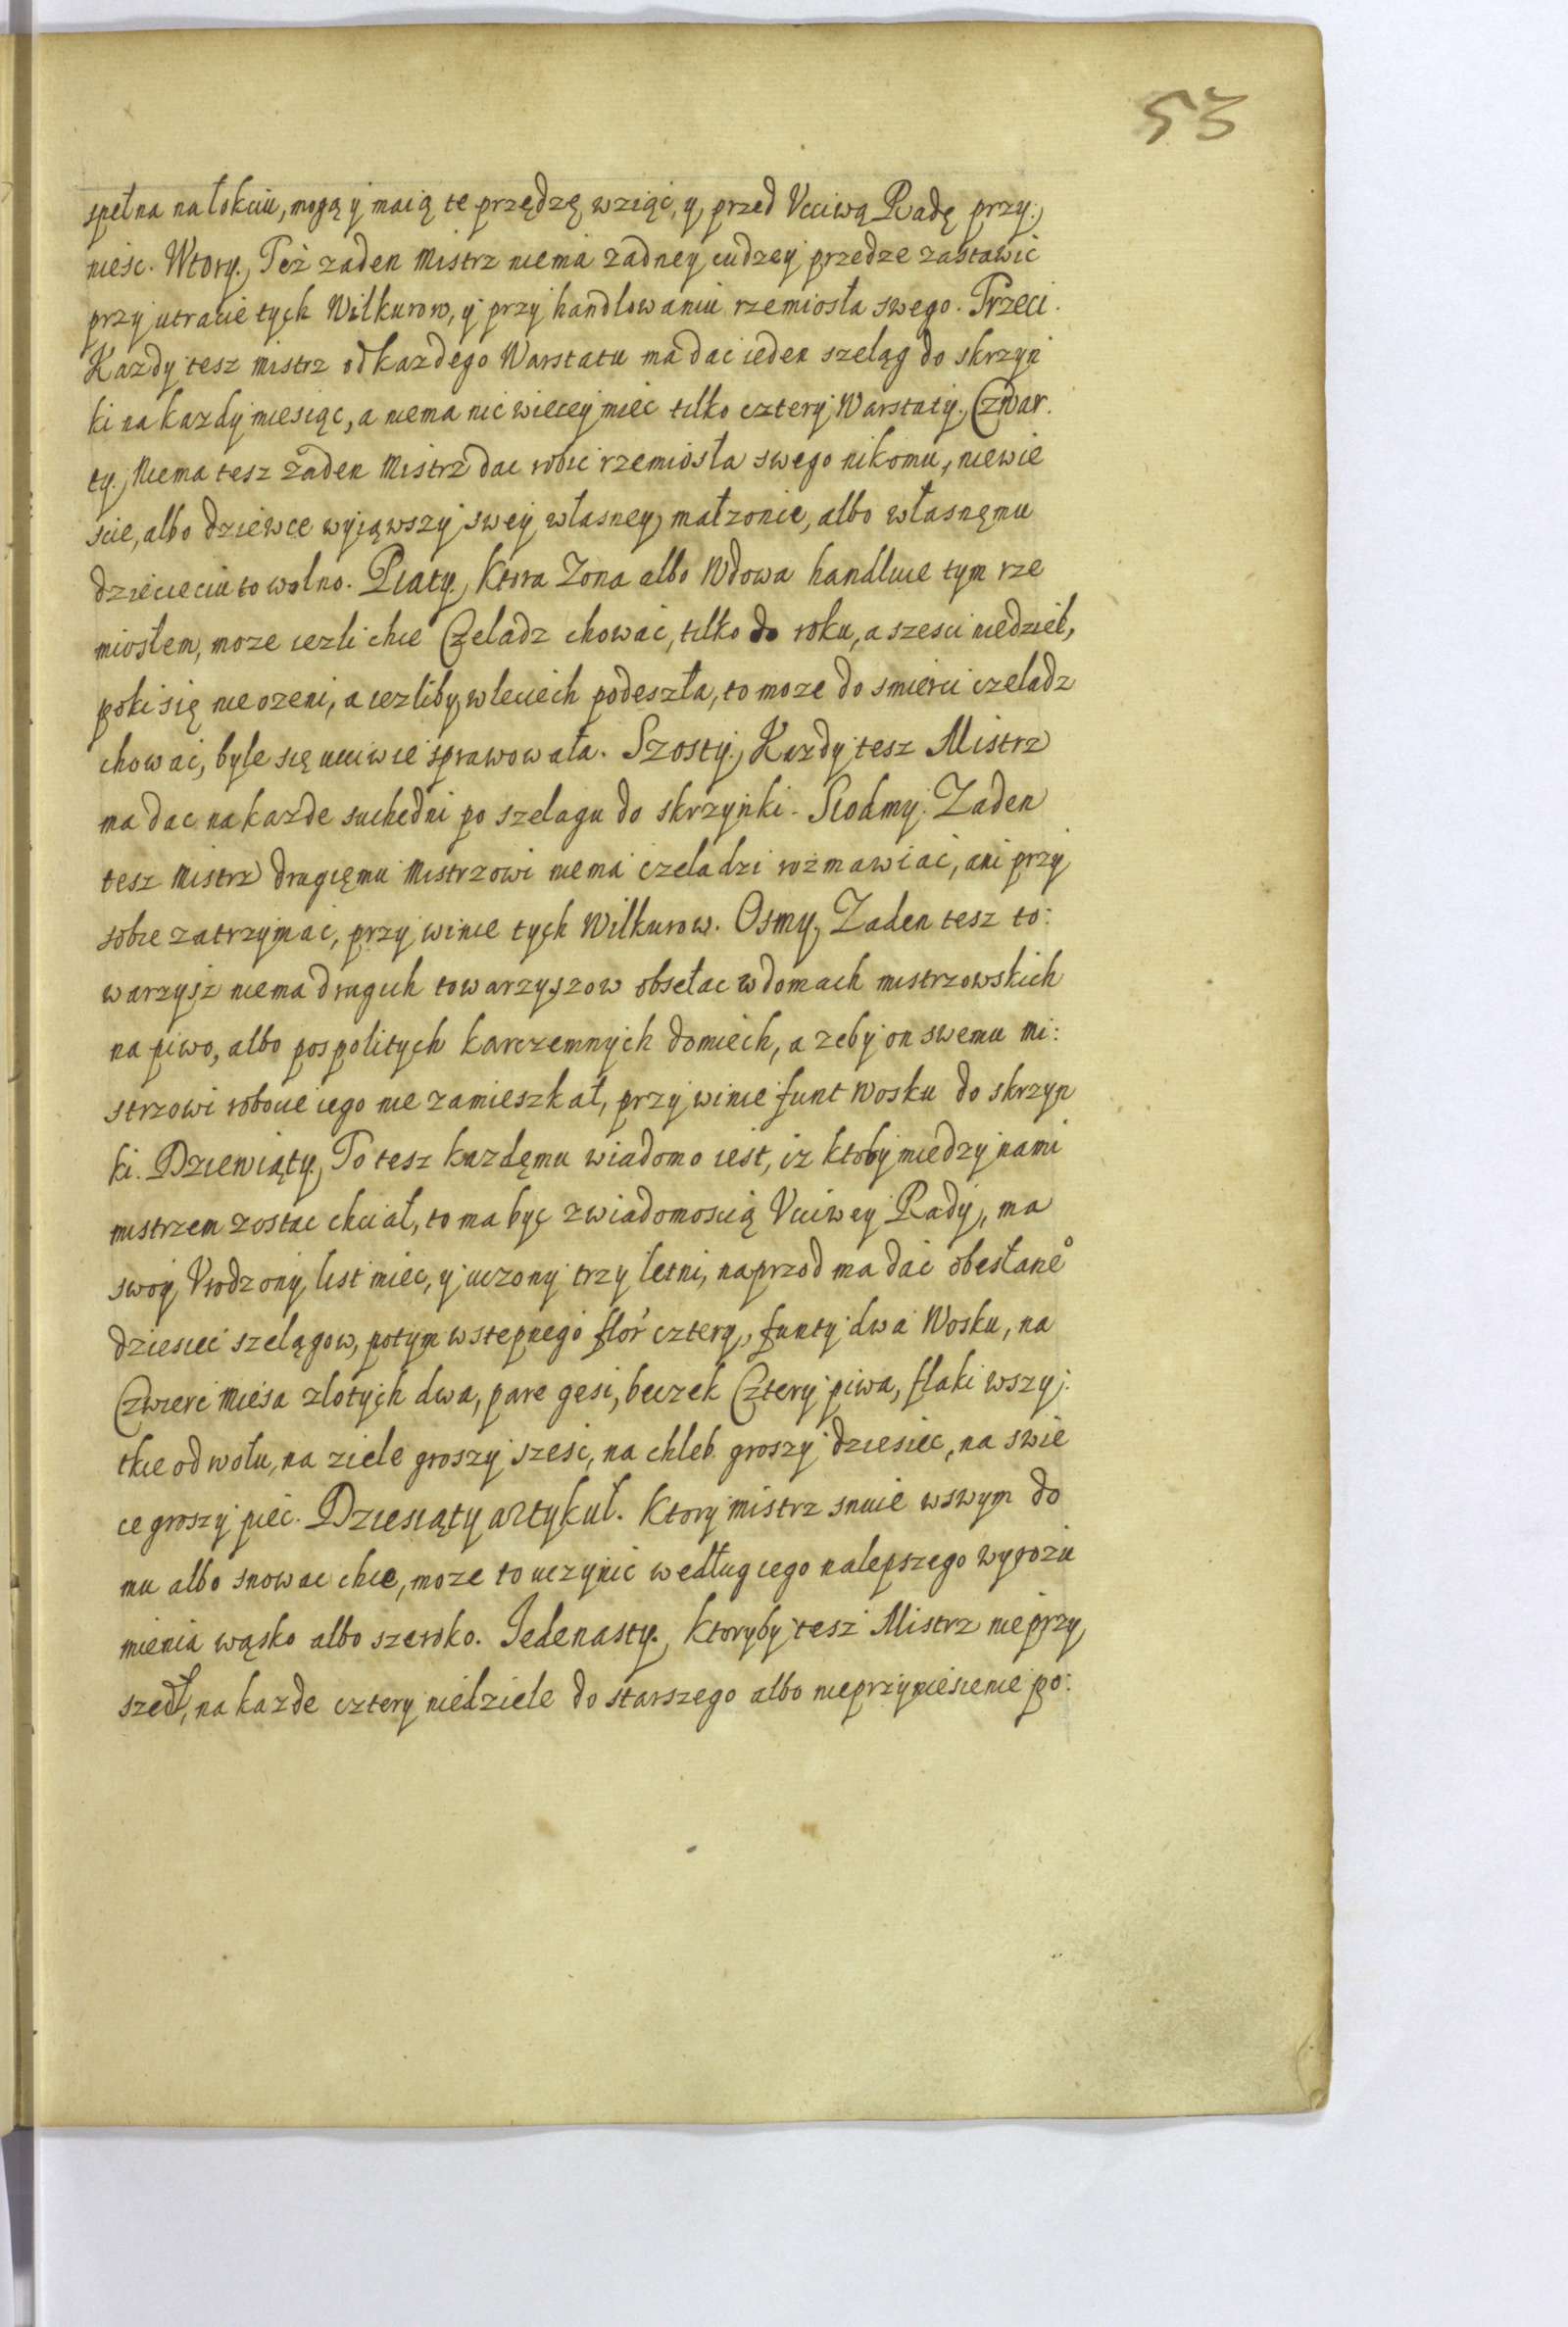 53
spełna na łokciu, mogą y maią te przędzę wziąć, y przed Vcciwą Radę przy:
niesc. Wtory. Też zaden Mistrz niema zadney cudzey przedze zastawić
przy utracie tych Wilkurow, y przy handlowaniu rzemiosła swego. Trzeci.
Kazdy tesz mistrz od kazdego Warstatu ma dac ieden szeląg do skrzyn
ki na kazdy miesiąc, a niema nic wiecey miec tilko cztery Warstaty. Czwar.
ty. Niema tesz zaden Mistrz dac robic rzemiosła swego nikomu, niewie
scie, albo dziewce wyiąwszy swey własney małzonce, albo własnęmu
dziecieciu to wolno. Piąty. Ktora Zona albo Wdowa handluie tym rze
miosłem, moze iezli chce Czeladz chować, tilko do roku, a szesci niedziel,
poki się nie ozeni, a iezliby w leciech podeszła, to moze do smierci czeladz
chowac, byle się ucciwie sprawowała. Szosty. Kazdy tesz Mistrz
ma dac na kazde suchedni po szelagu do skrzynki. Siodmy. Zaden
tesz Mistrz drugięmu Mistrzowi niema czeladzi rozmawiać, ani przy
sobie zatrzymac, przy winie tych Wilkurow. Osmy. Zaden tesz to:
warzysz niema drugich towarzyszow obsełac w domach mistrzowskich
na piwo, albo pospolitych karczemnych domiech, a zeby on swemu mi:
strzowi robocie iego nie zamieszkał, przy winie funt Wosku do skrzyn
ki. Dziewiąty. To tesz kazdęmu wiadomo iest, iz ktoby miedzy nami
mistrzem zostac chciał, to ma byc z wiadomoscią Vcciwey Rady, ma
swoy Vrodzony list miec, y uczony trzy letni, naprzod ma dać obesłane°
dziesiec szelągow, potym wstepnego flor cztery, funty dwa Wosku, na
Czwierc Miesa zlotych dwa, pare gesi, beczek Cztery piwa, flaki wszy:
tkie od wołu, na ziele groszy szesc, na chleb groszy dziesiec, na swie
ce groszy piec. Dziesiąty artykuł. Ktory mistrz snuie w swym do
mu albo snowac chce, moze to uczynic według iego nalepszego wyrozu
mienia wąsko albo szeroko. Jedenasty. Ktoryby tesz Mistrz nie przy
szedł, na kazde cztery niedziele do starszego albo nieprzyniesienie po: